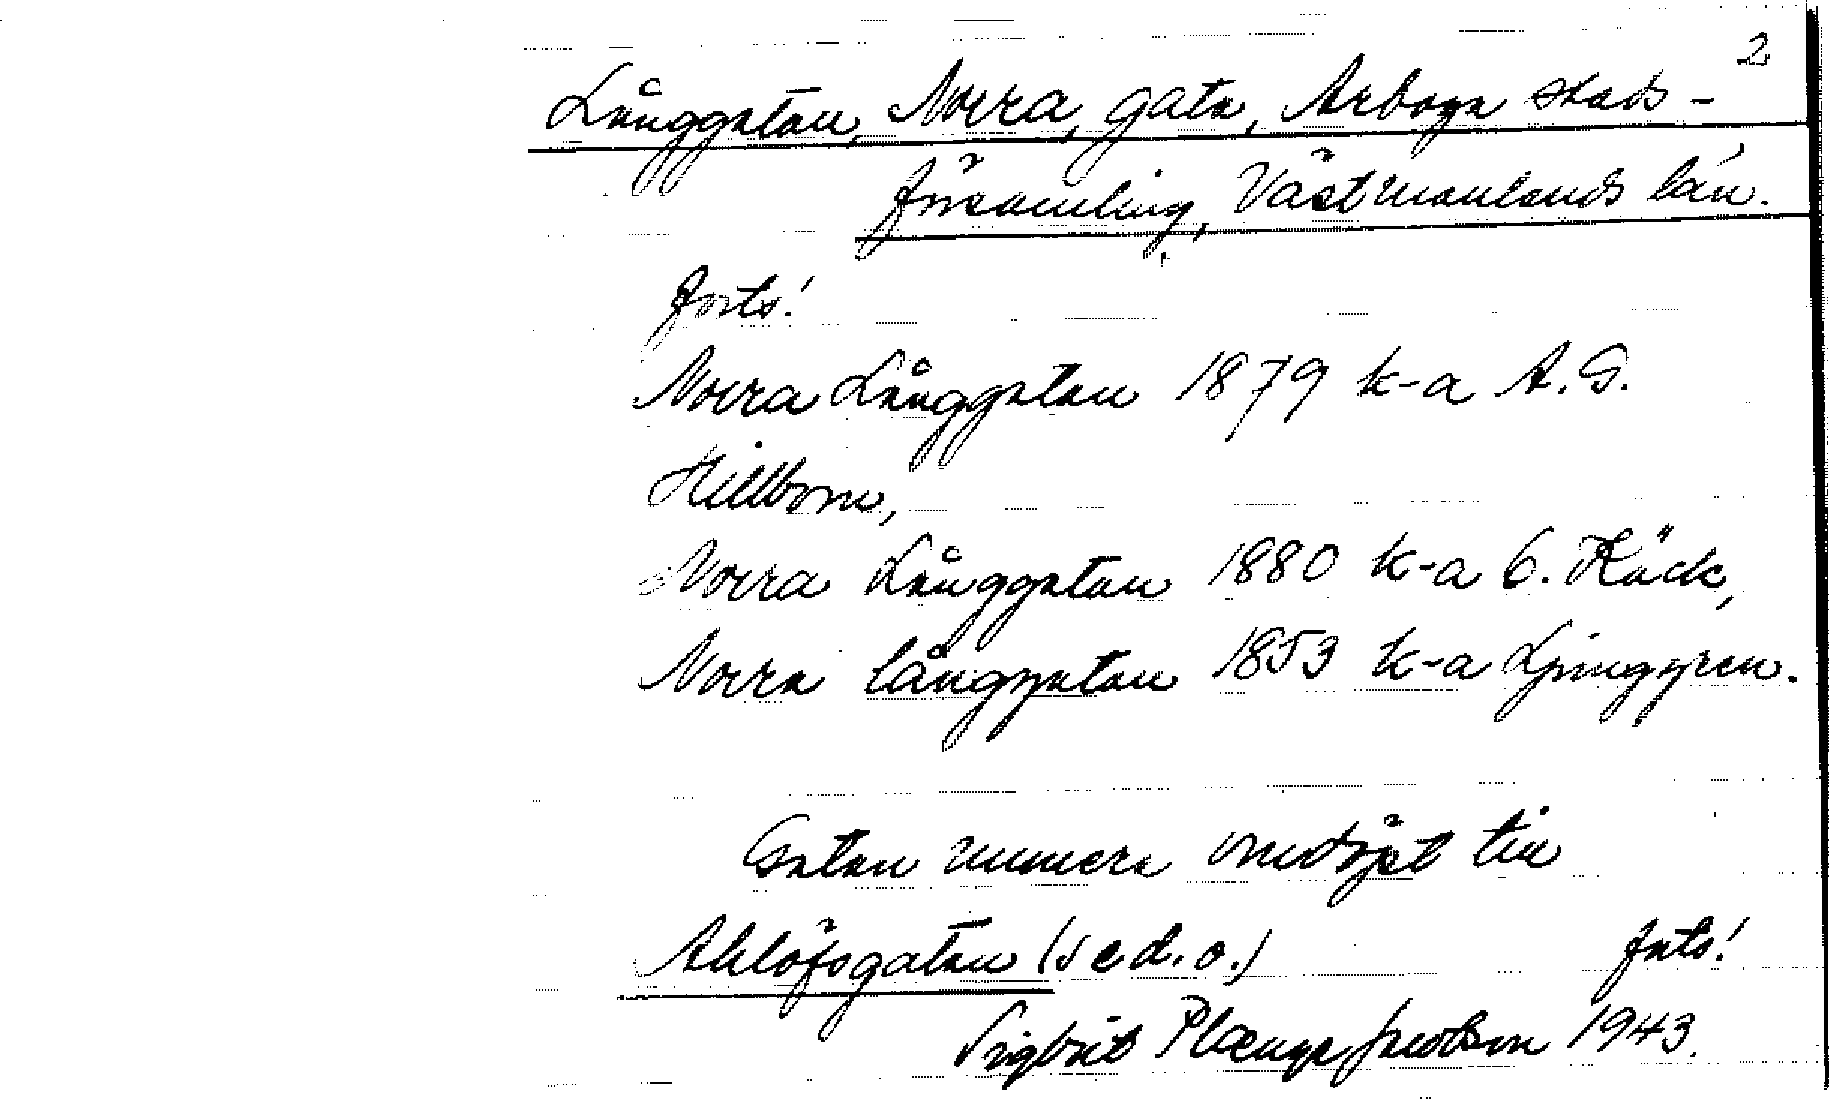 2
Långgatan, Norra, gata, Arboga stads-
församling, Västmanlands län.
forts!
Norra Långgatan 1879 k-a A. G.
Hillbom,
Norra Långgatan 1880 k-a C. Käck,
Norra långgatan 1853 k-a Ljunggren.
Gatan numera omdöpt till
Ahllöfsgatan (se d. o.)
forts!
Sigbrit Plænge Jacobson 1943.